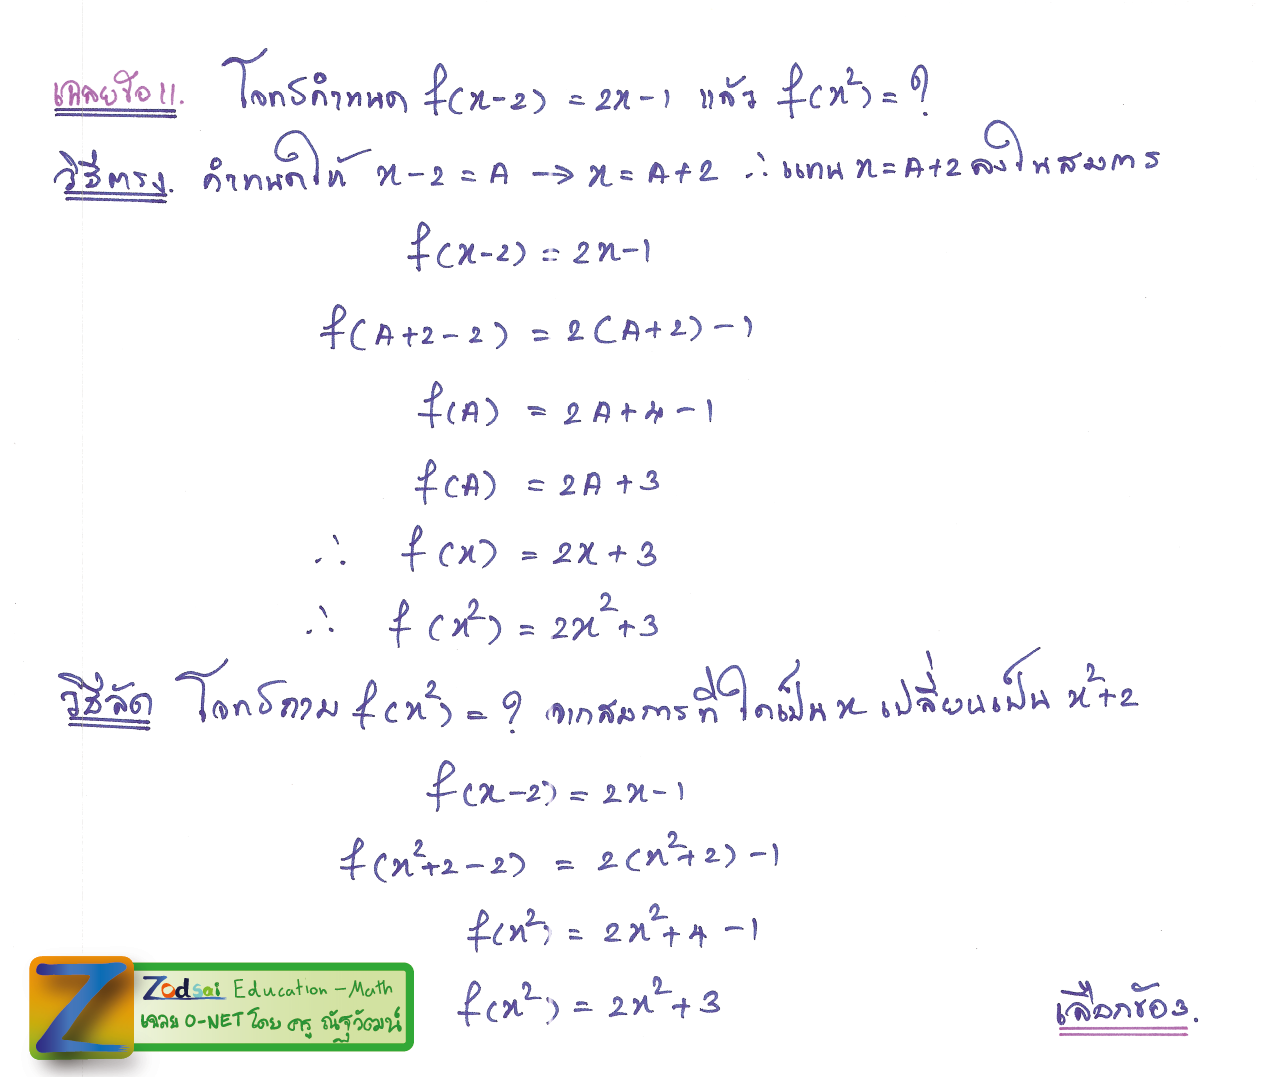 เฉลยข้อ 11. โจทย์กำหนด f(x-2) = 2x-1 แล้ว f(x²) = ?
วิธีตรง. กำหนดให้ x-2 = A → x = A+2 ∴ แทน x = A+2 ลงในสมการ
f(x-2) = 2x-1
f(A+2-2) = 2(A+2)-1
f(A) = 2A+4-1
f(A) = 2A+3
∴ f(x) = 2x+3
∴ f(x²) = 2x²+3
วิธีลัด โจทย์ถาม f(x²) = ? จากสมการที่ใดเป็น x เปลี่ยนเป็น x²+2
f(x-2) = 2x-1
f(x²+2-2) = 2(x²+2)-1
f(x²) = 2x²+4-1
f(x²) = 2x²+3
เลือกข้อ 3.
Z
Zodsai Education-Math
เฉลย O-NET โดย ครู ณัฐวัฒน์